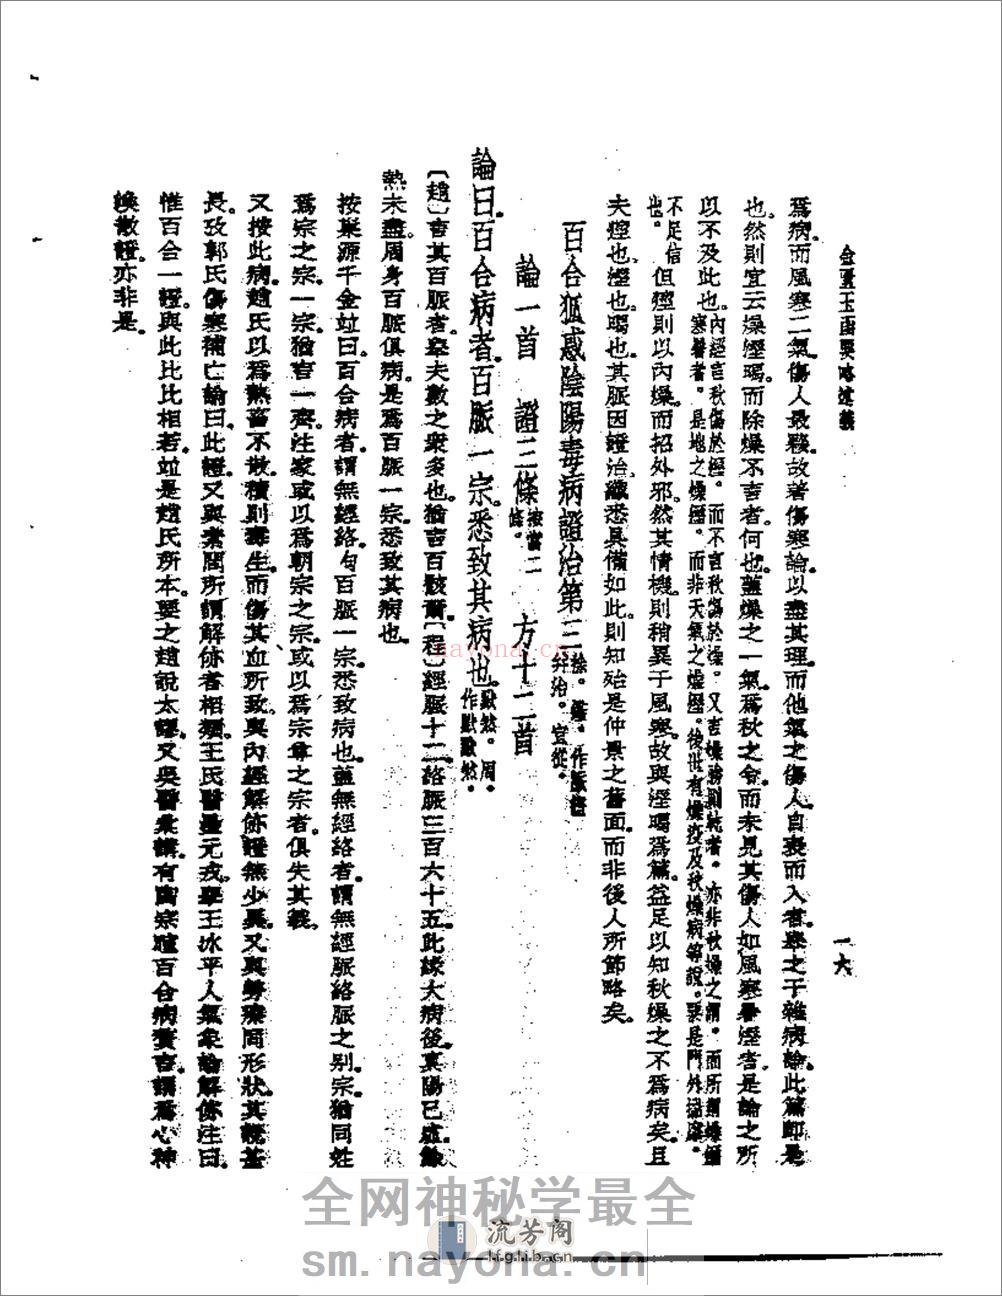 金匱玉函要略述義
一六
爲病而風寒二氣傷人最緊故著傷寒論以盡其理而他氣之傷人自表而入者舉之于雜病論此篇即是
也然則宜云燥濕暍而除燥不言者何也蓋燥之一氣爲秋之令而未見其傷人如風寒暑濕者是論之所
以不及此也。內經言秋傷於濕。而不言秋傷於燥。又言燥勝則乾者。亦非秋燥之謂。而所謂燥濕
寒暑者。是地之燥濕。而非天氣之燥濕。後世有燥疫及秋燥病等說。要是門外
不足信
也。但痙則以內燥而招外邪然其情機則稍異于風寒故與濕暍爲篇益足以知秋燥之不爲病矣且
夫痙也濕也暍也其脈因證治纖悉具備如此則知殆是仲景之舊面而非後人所節略矣
百合狐惑陰陽毒病證治第三徐。鑑。作
并治。宜從。
論一首　證三條按當二
條。　方十二首
論曰百合病者百脈一宗悉致其病也。默然。周。
作默默然。
〔趙〕言其百脈者舉夫數之衆多也猶言百骸爾〔程〕經脈十二絡脈三百六十五此緣大病後眞陽已虛餘
熱未盡周身百脈俱病是爲百脈一宗悉致其病也
按巢源千金竝曰百合病者謂無經絡句百脈一宗悉致病也蓋無經絡者謂無經脈絡脈之別宗猶同姓
爲宗之宗一宗猶言一齊注家或以爲朝宗之宗或以爲宗章之宗者俱失其義
又按此病趙氏以爲熱畜不散積則毒生而傷其血所致與內經解㑊證無少異又與勞瘵同形狀其說甚
長攷郭氏傷寒補亡論曰此證又與素問所謂解㑊者相類王氏醫壘元戎舉王冰平人氣象論解㑊注曰
惟百合一證與此比比相若竝是趙氏所本要之趙說太謬又吳醫彙講有陶宗暄百合病贅言謂爲心神
渙散證亦非是
nayona.cn
全网神秘学最全
流芳阁
lfglib.cn
sm.nayona.cn